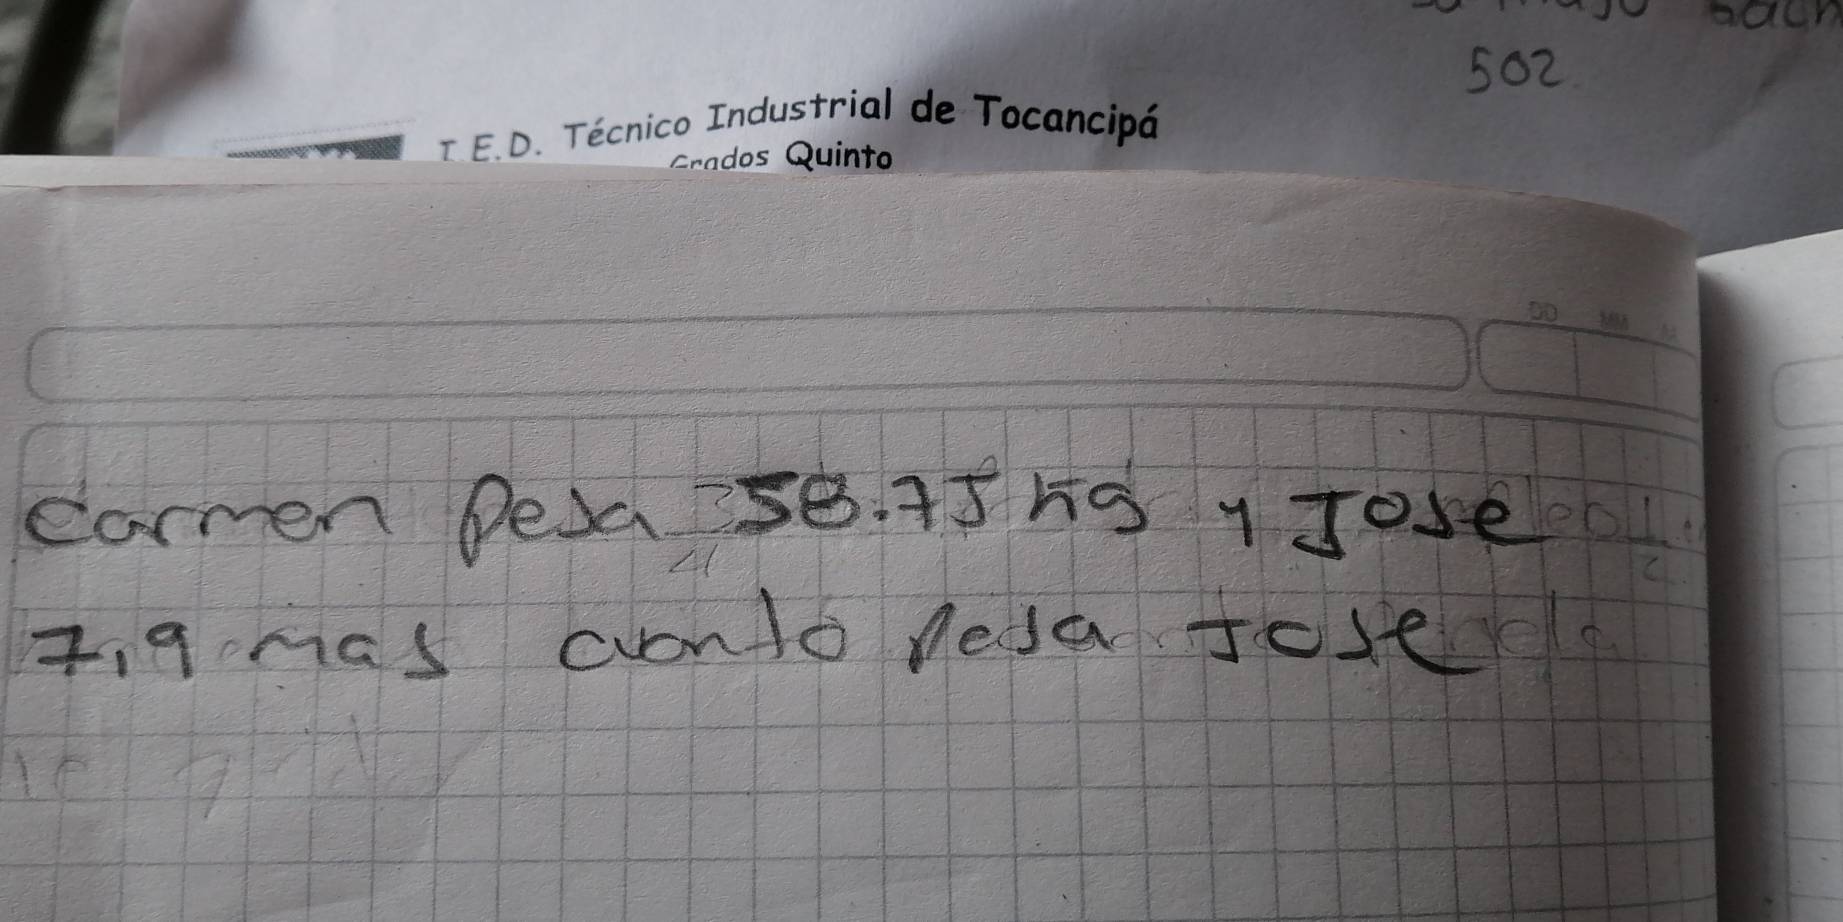 502
I.E.D. Técnico Industrial de Tocancipá
Grados Quinto
DD MM AA
Carmen Pesa 58.75 kg y Jose
7,9 mas cuonto pesa Jose